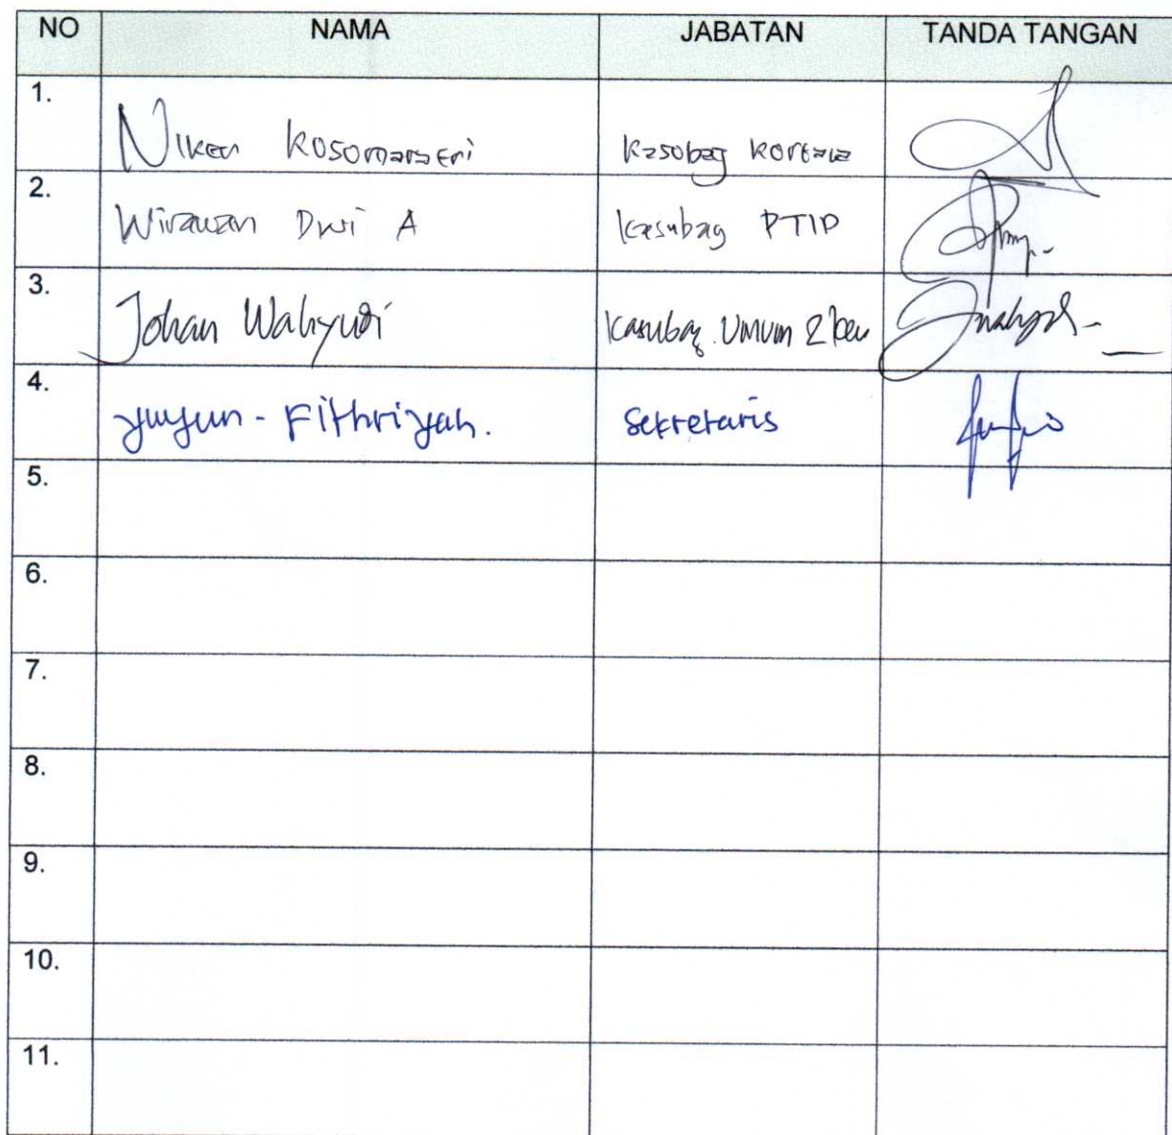 NO NAMA JABATAN TANDA TANGAN
1. Niken Kosomarsari Kasubag Kortala
2. Wirawan Dwi A Kasubag PTIP
3. Johan Wahyudi Kasubag Umum & keu
4. Yuyun - Fithriyah. Sekretaris
5.
6.
7.
8.
9.
10.
11.